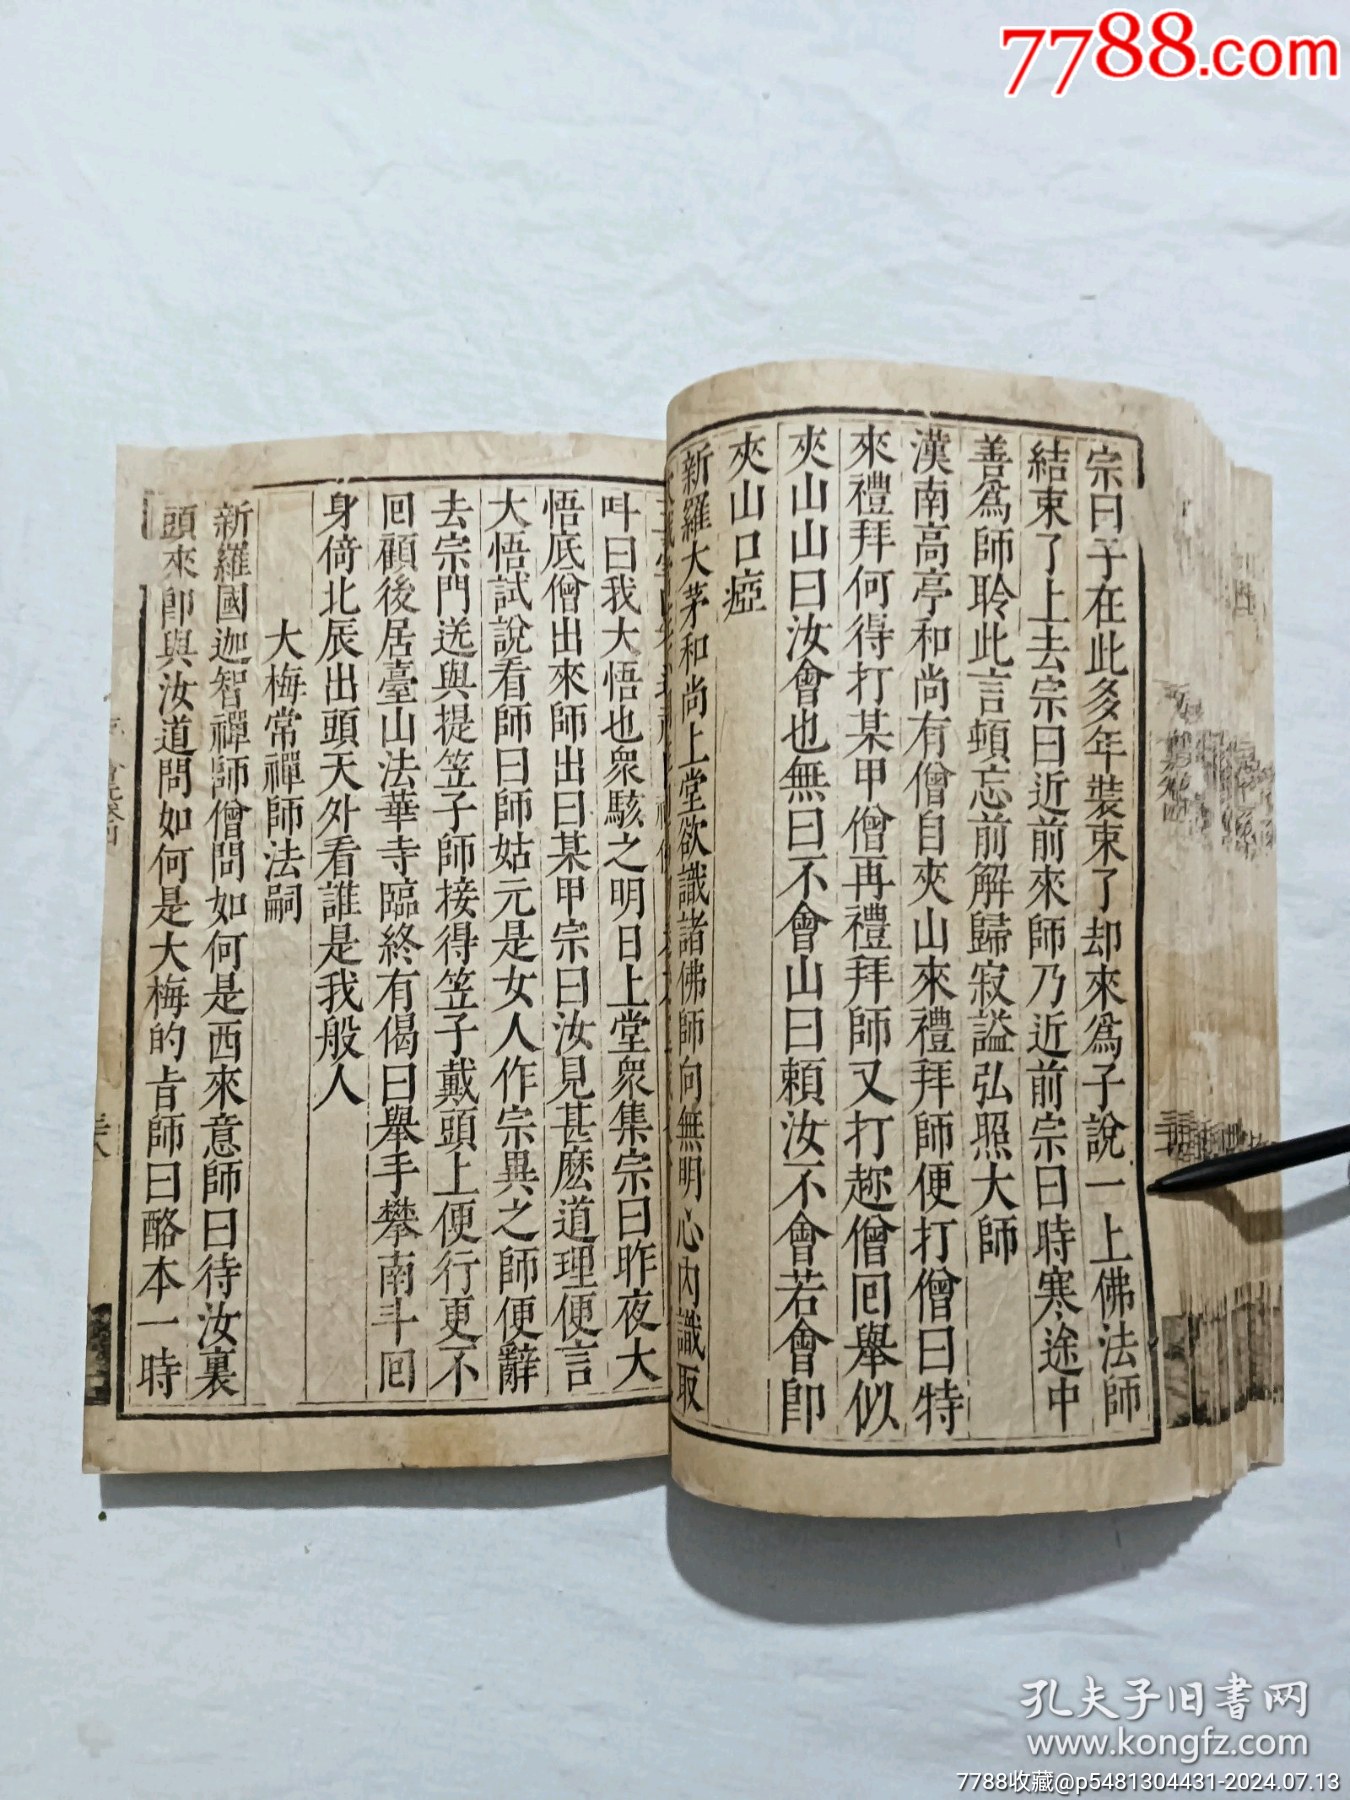 7788.com
宗曰子在此多年裝束了却來爲子說一上佛法師
結束了上去宗曰近前來師乃近前宗曰時寒途中
善爲師聆此言頓忘前解歸寂謚弘照大師
漢南高亭和尚有僧自夾山來禮拜師便打僧曰特
來禮拜何得打某甲僧再禮拜師又打趂僧回舉似
夾山山曰汝會也無曰不會山曰賴汝不會若會卽
夾山口瘂
新羅大茅和尚上堂欲識諸佛師向無明心內識取
呌曰我大悟也衆駭之明日上堂衆集宗曰昨夜大
悟底僧出來師出曰某甲宗曰汝見甚麽道理便言
大悟試說看師曰師姑元是女人作宗異之師便辭
去宗門送與提笠子師接得笠子戴頭上便行更不
回顧後居臺山法華寺臨終有偈曰舉手攀南斗回
身倚北辰出頭天外看誰是我般人
大梅常禪師法嗣
新羅國迦智禪師僧問如何是西來意師曰待汝裏
頭來卽與汝道問如何是大梅的旨師曰酪本一時
孔夫子旧書网
www.kongfz.com
7788收藏@p5481304431-2024.07.13